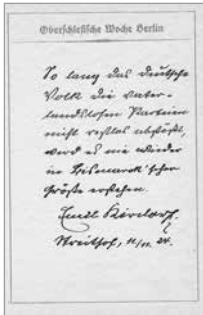 Oberschlesische Woche Berlin
So lang das deutsche
Volk die vater-
landslosen Parteien
nicht restlos abstößt,
wird es nie wieder
in Bismarck'scher
Größe erstehen.
Emil Kirdorf.
Streithof, 11/11. 24.